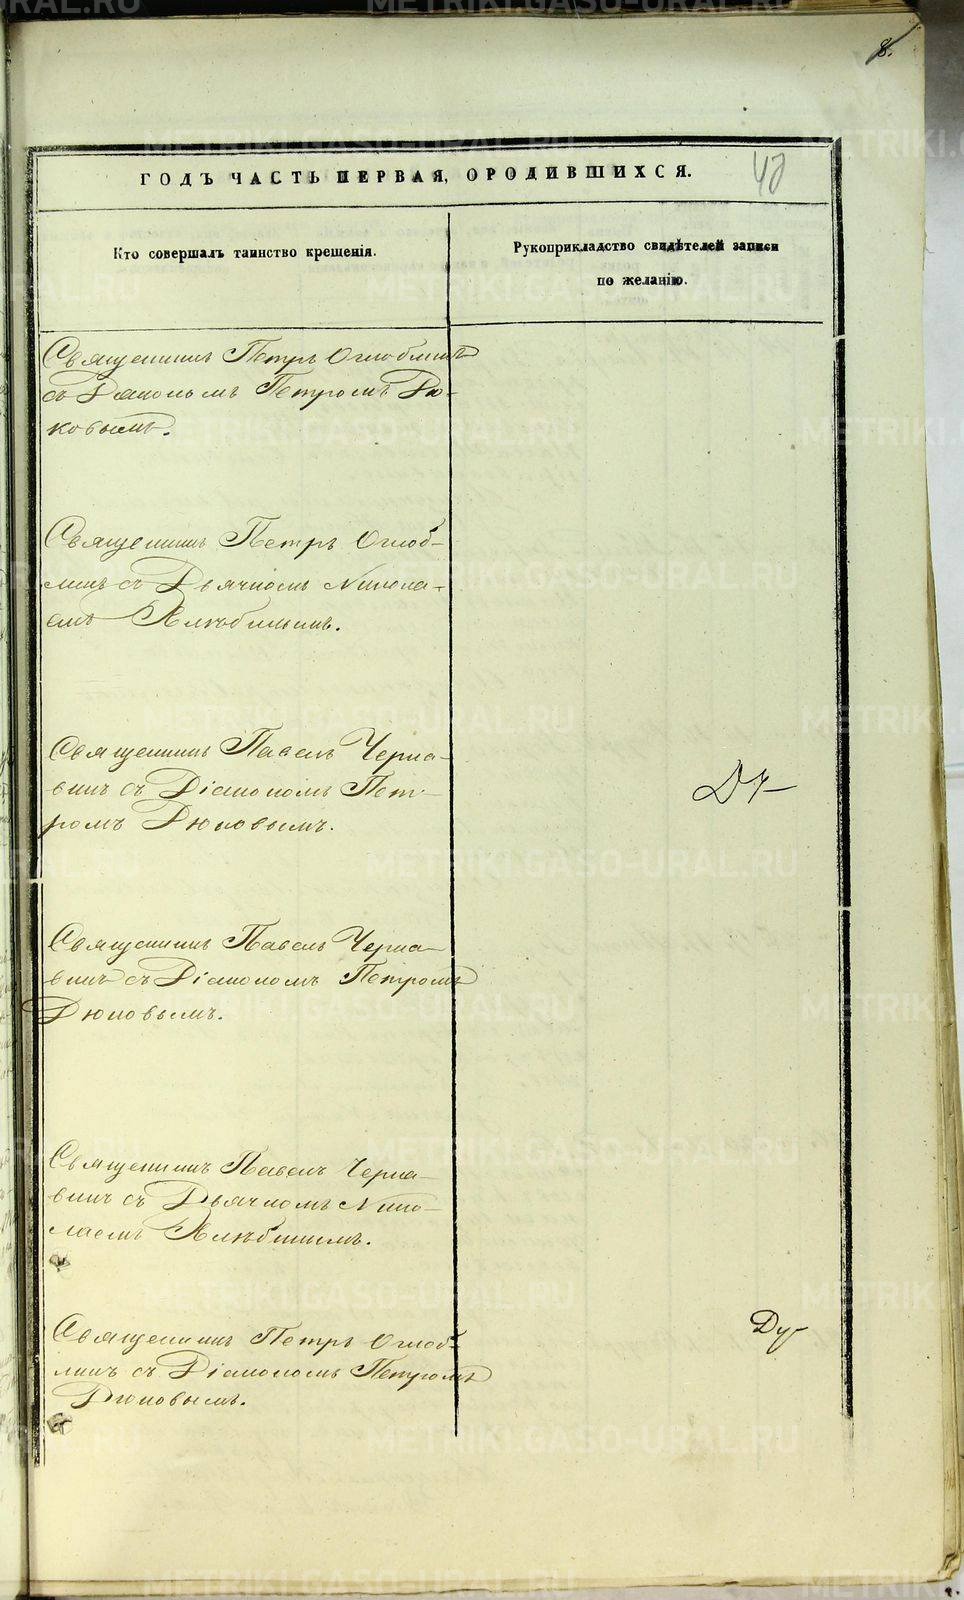 8.
ГОДЪ ЧАСТЬ ПЕРВАЯ, О РОДИВШИХСЯ.
Кто совершалъ таинство крещенія.
Рукоприкладство свидѣтелей записи
по желанію.
Священникъ Петръ Оглоблинъ
съ Діакономъ Петромъ Дю-
ковымъ.
Священникъ Петръ Оглоб-
линъ съ Дьячкомъ Никола-
емъ
Священникъ Павелъ Черна-
винъ съ Діакономъ Пет-
ромъ Дюковымъ.
Священникъ Павелъ Черна-
винъ съ Діакономъ Петромъ
Дюковымъ.
Священникъ Павелъ Черна-
винъ съ Дьячкомъ Нико-
лаемъ
Священникъ Петръ Оглоб-
линъ съ Діакономъ Петромъ
Дюковымъ.
METRIKI.GASO-URAL.RU